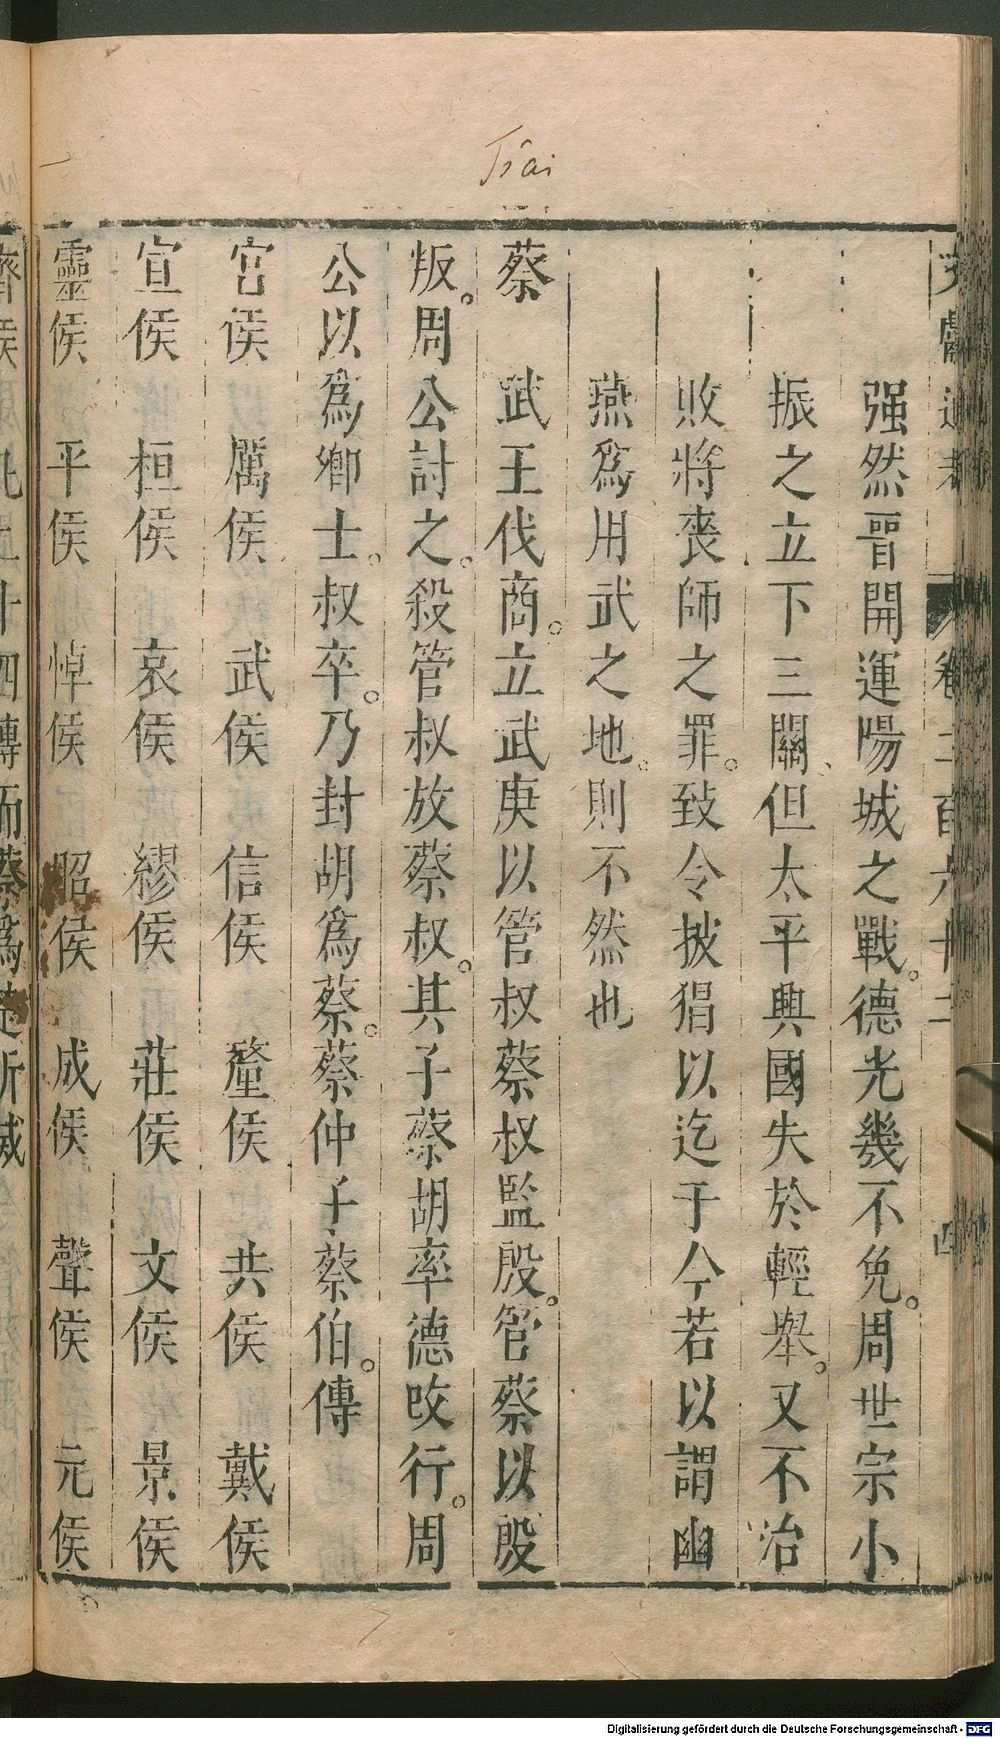 Tsai
文獻通考 卷二百六十二 四
强然晋開運陽城之戰。德光幾不免。周世宗小
振之立下三關、但太平興國失於輕舉。又不治
敗將喪師之罪。致令披猖以迄于今若以謂幽
燕爲用武之地。則不然也
蔡 武王伐商。立武庚以管叔蔡叔監殷。管蔡以殷
叛。周公討之。殺管叔放蔡叔。其子蔡胡率德改行。周
公以爲卿士。叔卒。乃封胡爲蔡。蔡仲子蔡伯。傳
宮侯 厲侯 武侯 信侯 釐侯 共侯 戴侯
宣侯 桓侯 哀侯 繆侯 莊侯 文侯 景侯
靈侯 平侯 悼侯 昭侯 成侯 聲侯 元侯
齊侯 十四傳而蔡爲楚所滅
Digitalisierung gefördert durch die Deutsche Forschungsgemeinschaft - DFG